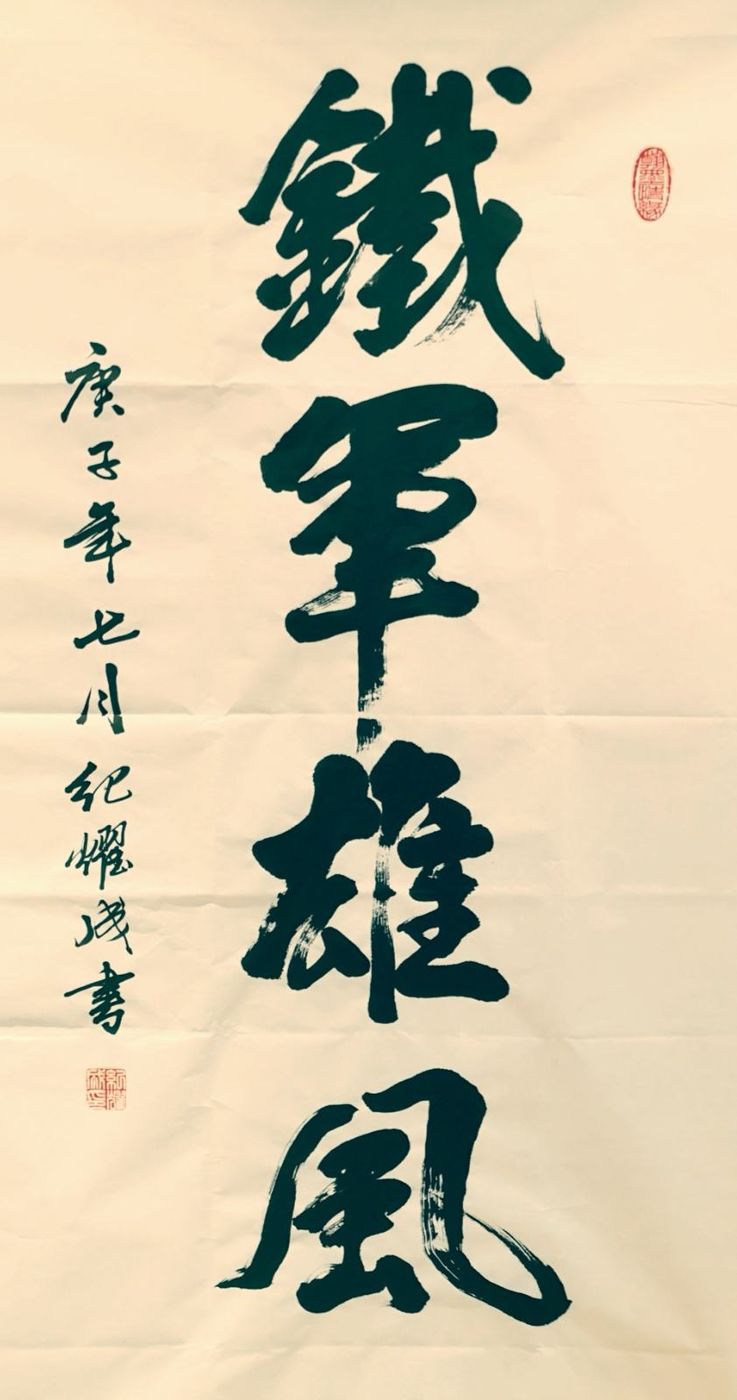 鐵軍雄風
庚子年七月紀耀成书